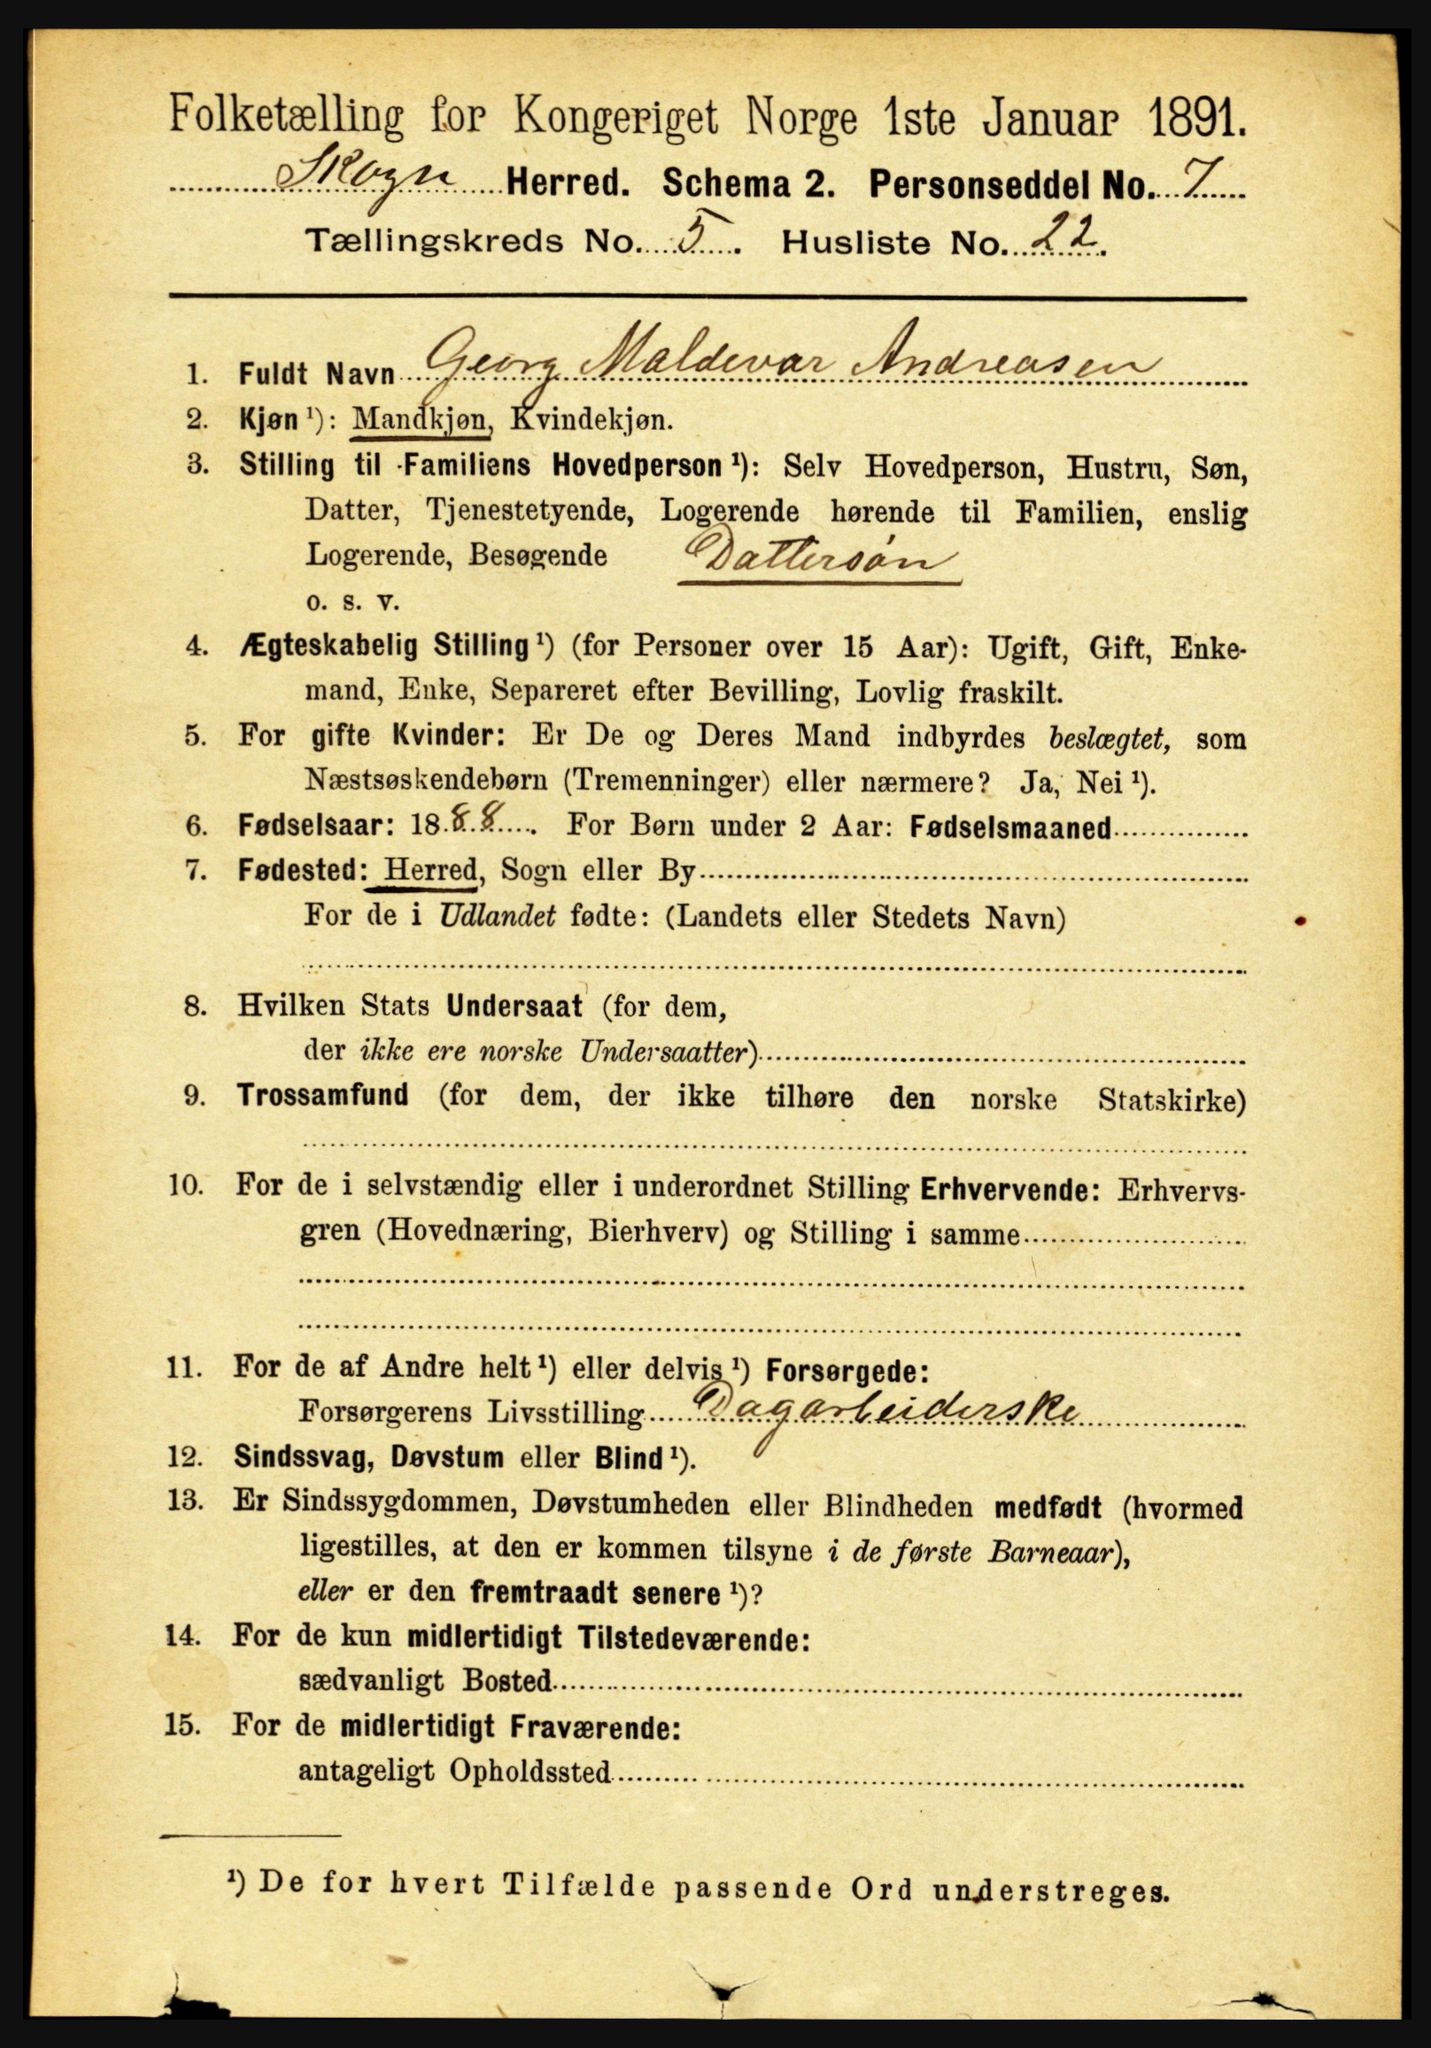 Folketælling for Kongeriget Norge 1ste Januar 1891.
Skogn Herred. Schema 2. Personseddel No. 7
Tællingskreds No. 5. Husliste No. 22.
1. Fuldt Navn Georg Maldevar Andreasen
2. Kjøn ¹): Mandkjøn, Kvindekjøn.
3. Stilling til Familiens Hovedperson ¹): Selv Hovedperson, Hustru, Søn,
Datter, Tjenestetyende, Logerende hørende til Familien, enslig
Logerende, Besøgende Dattersøn
o. s. v.
4. Ægteskabelig Stilling ¹) (for Personer over 15 Aar): Ugift, Gift, Enke-
mand, Enke, Separeret efter Bevilling, Lovlig fraskilt.
5. For gifte Kvinder: Er De og Deres Mand indbyrdes beslægtet, som
Næstsøskendebørn (Tremenninger) eller nærmere? Ja, Nei ¹).
6. Fødselsaar: 1888. For Børn under 2 Aar: Fødselsmaaned
7. Fødested: Herred, Sogn eller By
For de i Udlandet fødte: (Landets eller Stedets Navn)
8. Hvilken Stats Undersaat (for dem,
der ikke ere norske Undersaatter)
9. Trossamfund (for dem, der ikke tilhøre den norske Statskirke)
10. For de i selvstændig eller i underordnet Stilling Erhvervende: Erhvervs-
gren (Hovednæring, Bierhverv) og Stilling i samme
11. For de af Andre helt ¹) eller delvis ¹) Forsørgede:
Forsørgerens Livsstilling Dagarbeiderske
12. Sindssvag, Døvstum eller Blind ¹).
13. Er Sindssygdommen, Døvstumheden eller Blindheden medfødt (hvormed
ligestilles, at den er kommen tilsyne i de første Barneaar),
eller er den fremtraadt senere ¹)?
14. For de kun midlertidigt Tilstedeværende:
sædvanligt Bosted
15. For de midlertidigt Fraværende:
antageligt Opholdssted
¹) De for hvert Tilfælde passende Ord understreges.